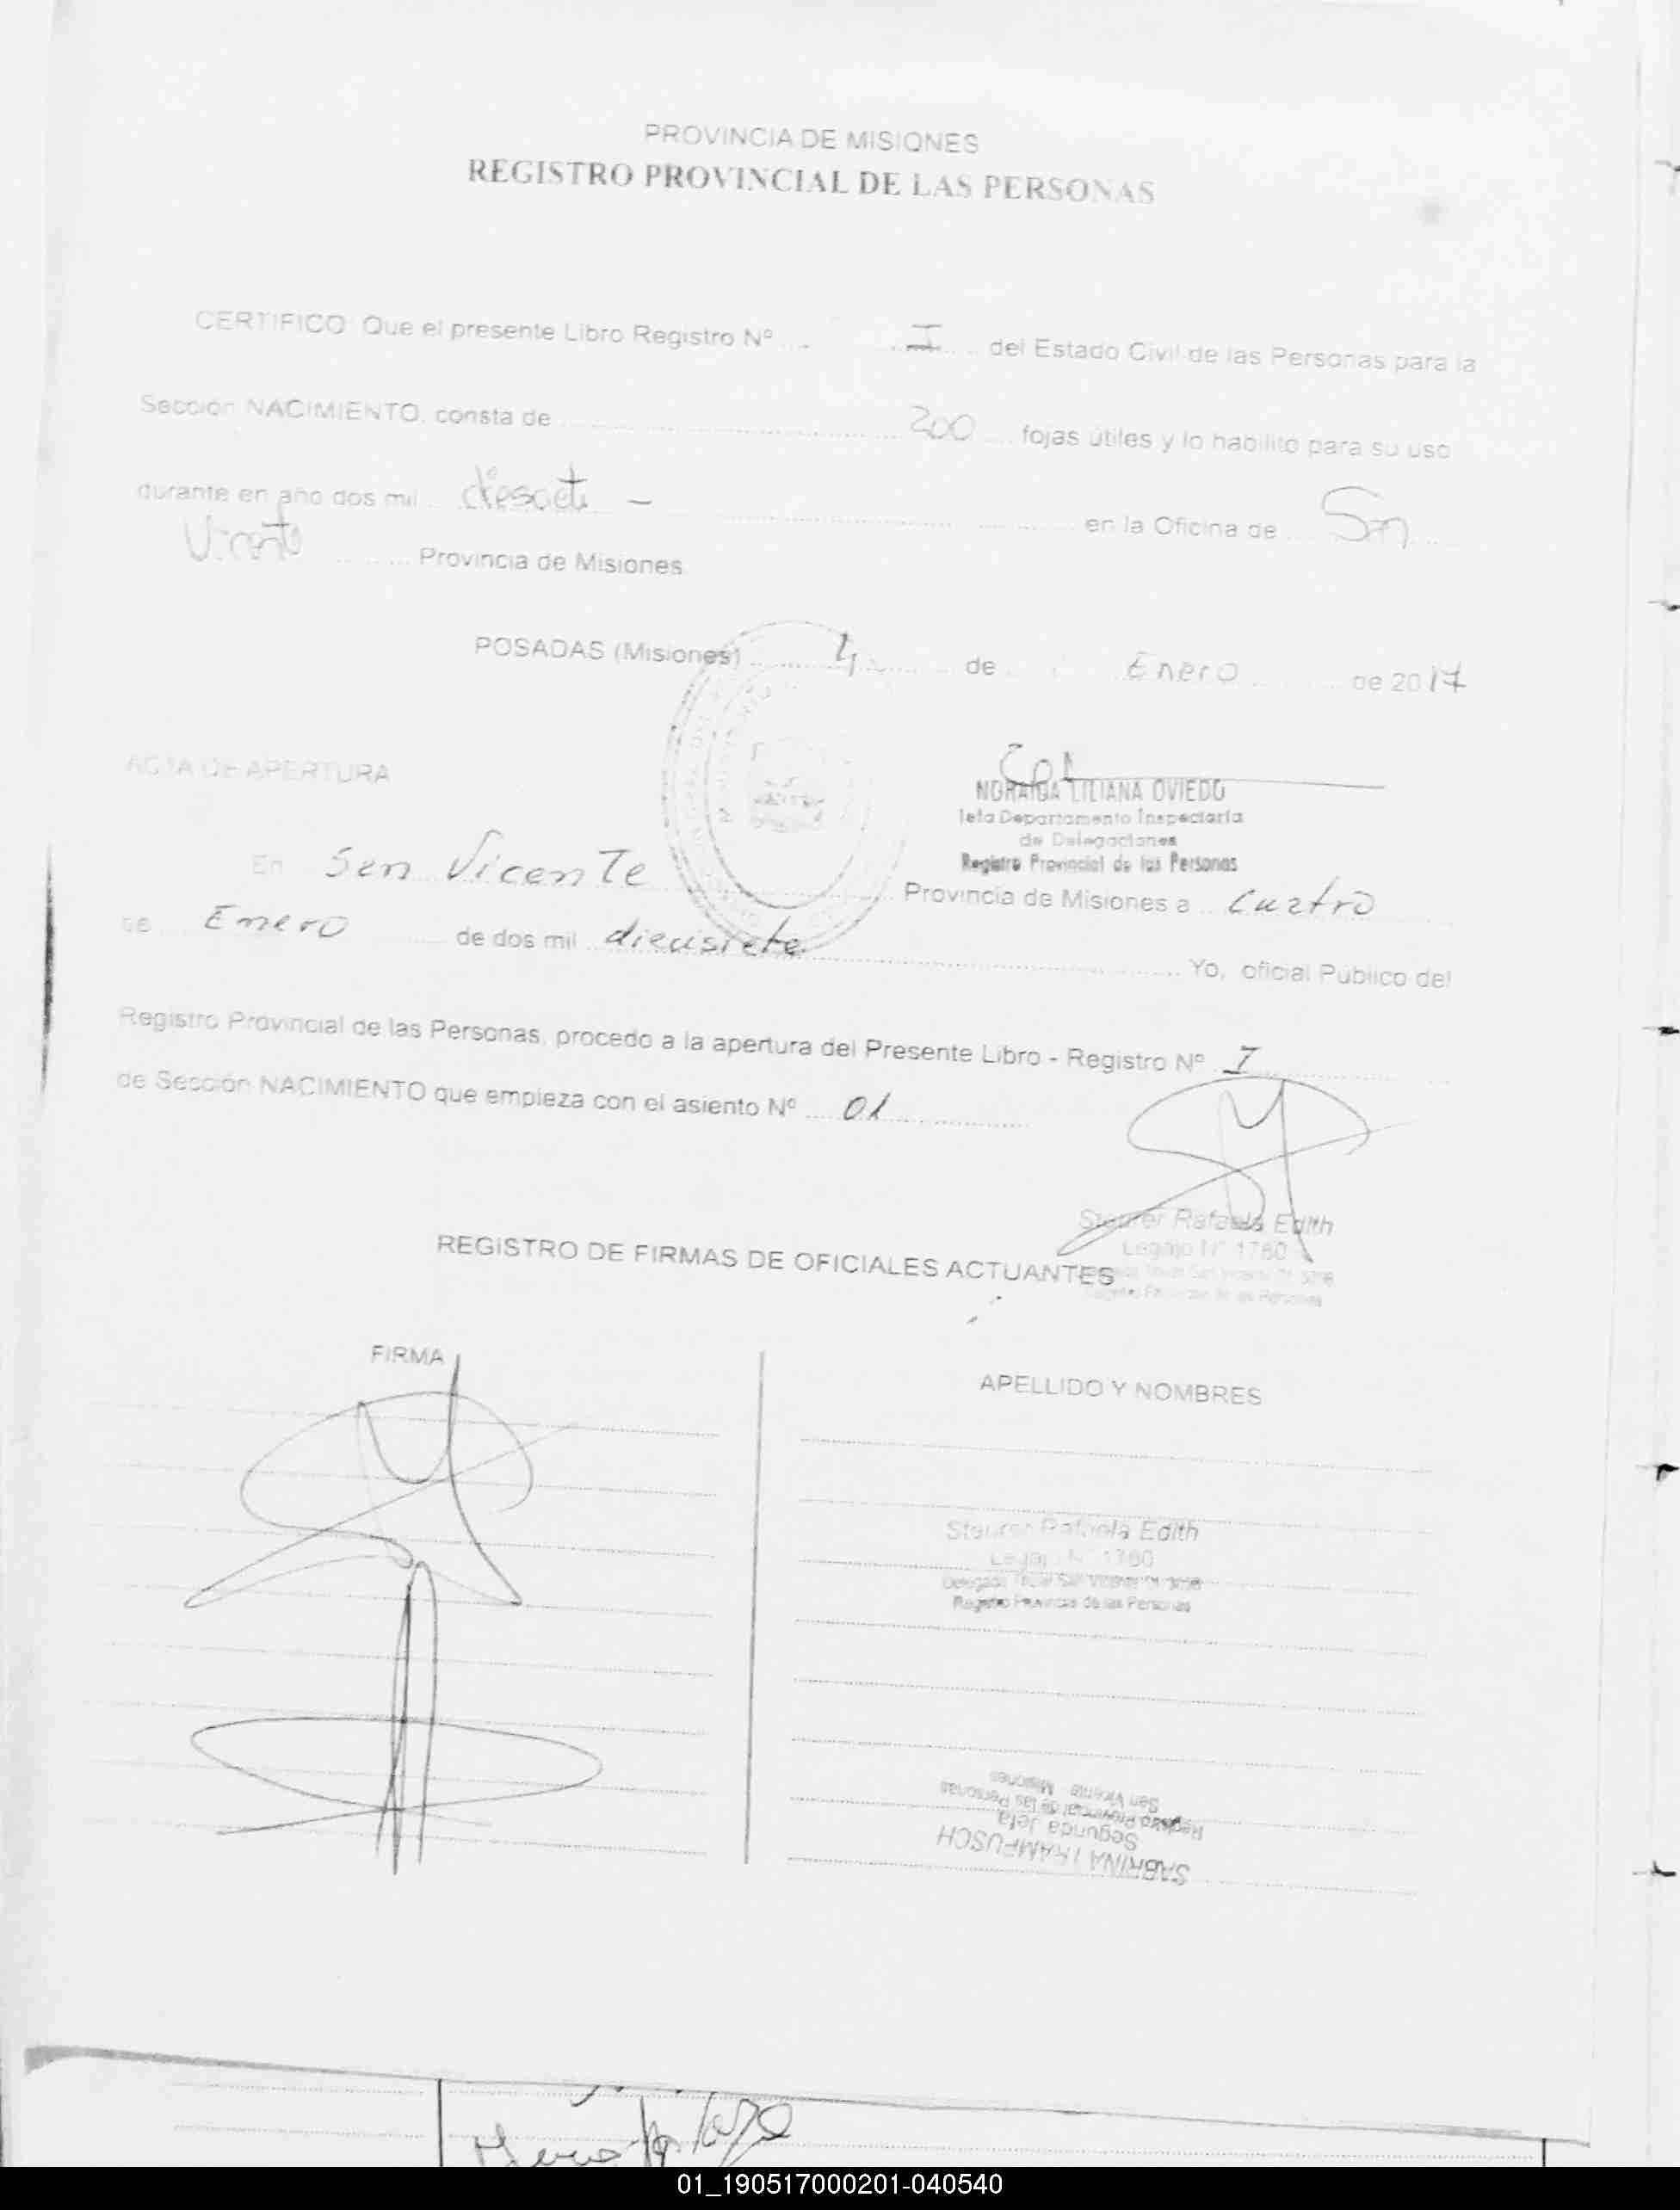 PROVINCIA DE MISIONES
REGISTRO PROVINCIAL DE LAS PERSONAS
CERTIFICO Que el presente Libro Registro Nº I del Estado Civil de las Personas para la
Sección NACIMIENTO, consta de 200 fojas útiles y lo habilito para su uso
durante en año dos mil en la Oficina de San
Vicente Provincia de Misiones
POSADAS (Misiones) 4 de Enero de 2017
ACTA DE APERTURA
NORAIDA LILIANA OVIEDO
Jefa Departamento Inspectoría
de Delegaciones
Registro Provincial de las Personas
En San Vicente Provincia de Misiones a cuatro
de Enero de dos mil diecisiete Yo, oficial Público del
Registro Provincial de las Personas, procedo a la apertura del Presente Libro - Registro Nº I
de Sección NACIMIENTO que empieza con el asiento Nº 01
Rafaela Edith
Legajo Nº 1760
Registro Provincial de las Personas
REGISTRO DE FIRMAS DE OFICIALES ACTUANTES
FIRMA
APELLIDO Y NOMBRES
Rafaela Edith
Legajo Nº 1760
Registro Provincial de las Personas
SABRINA TRAMPUSCH
Segunda Jefa
Registro Provincial de las Personas
San Vicente Misiones
01_190517000201-040540